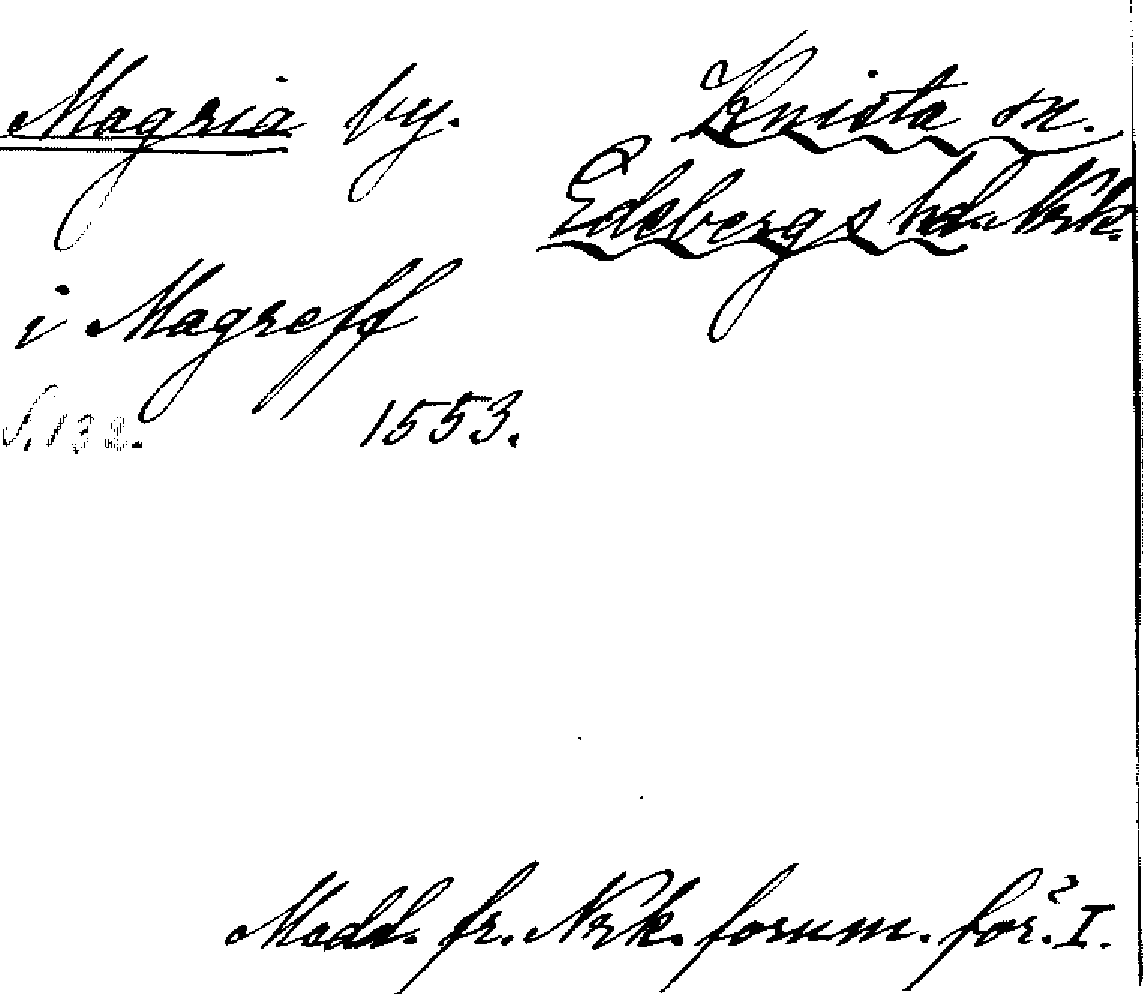 Magria by. Knista sn.
Edsbergs hd. Nrk.
i Magreff
S. 132. 1553.
Medd. fr. Nrk. fornm. för. I.